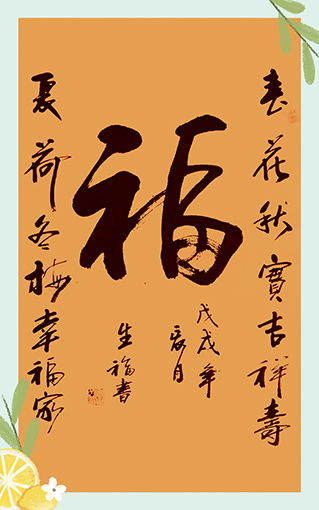 春花秋實吉祥壽
福
夏荷冬梅幸福家
戊戌年
辰月
生福書